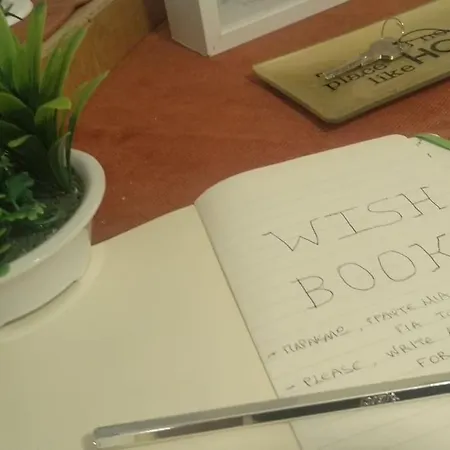 place
like HO
WISH
BOOK
- ΠΑΡΑΚΑΛΩ, ΓΡΑΨΤΕ ΜΙΑ
ΓΙΑ ΤΟ
- PLEASE, WRITE
FOR